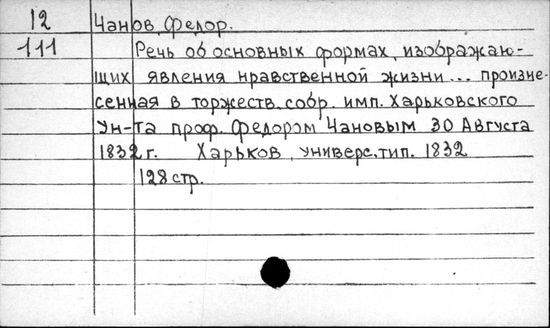 12 Чанов, Федор.
111 Речь об основных формах, изображаю-
щих явления нравственной жизни... произне-
сенная в торжеств. собр. имп. Харьковского
Ун-та проф. Федором Чановым 30 Августа
1832 г. Харьков, универс. тип. 1832
128 стр.